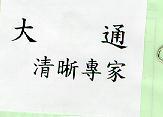 大通
清晰專家